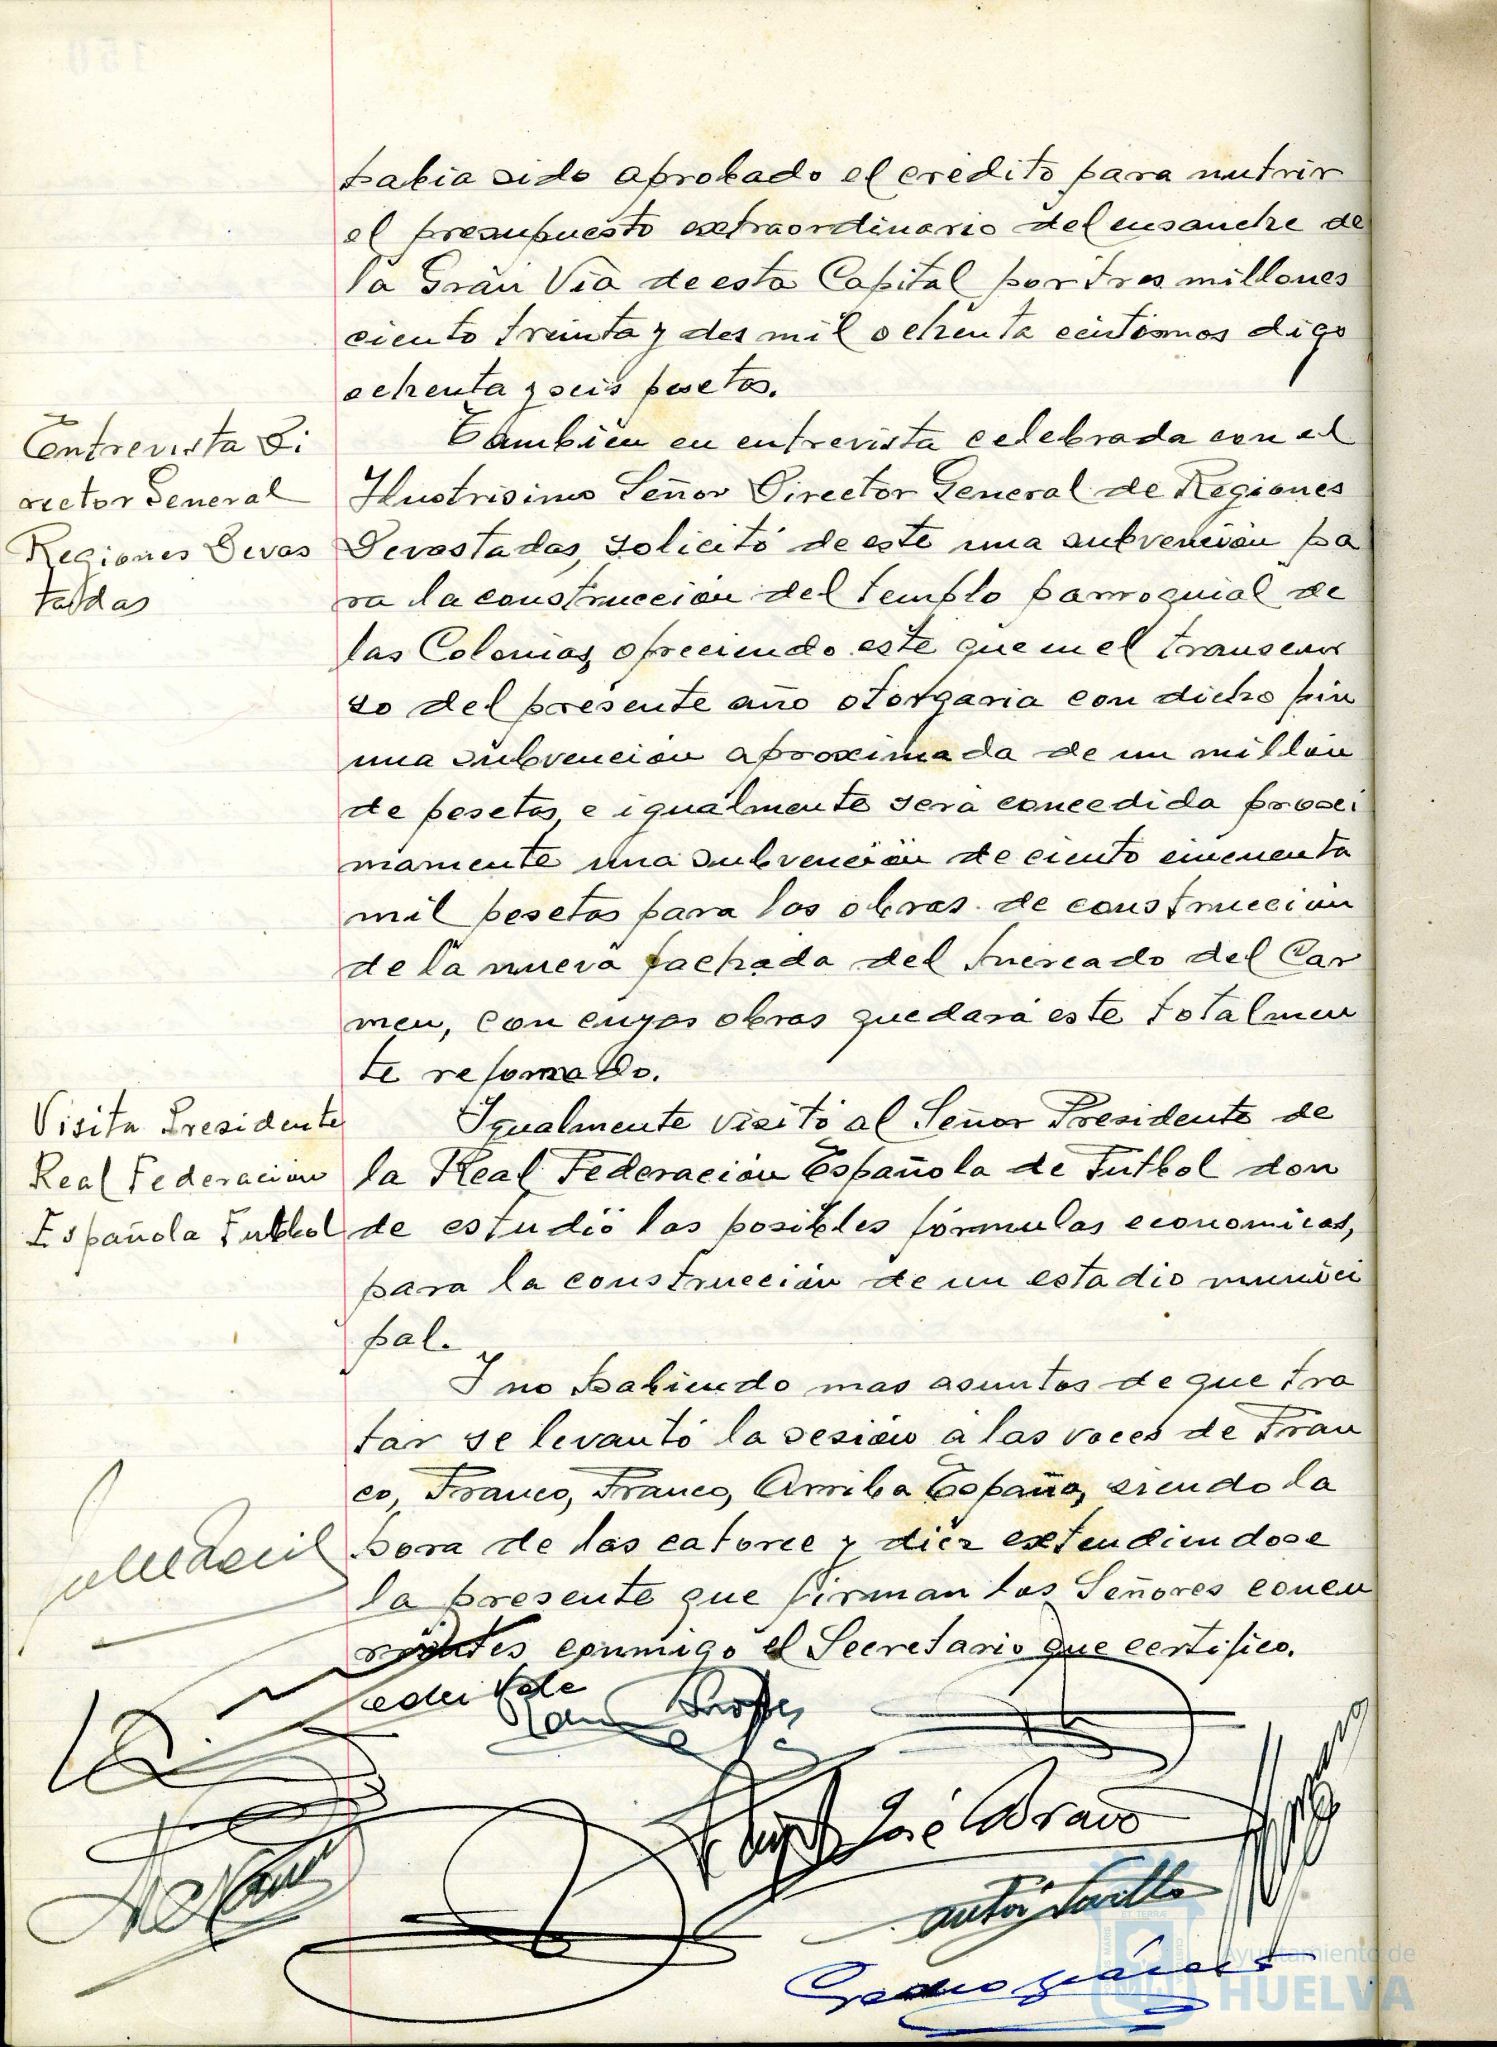 habia sido aprobado el credito para nutrir
el presupuesto extraordinario del ensanche de
la Gran Via de esta Capital por tres millones
ciento treinta y dos mil ochenta centismos digo
ochenta y seis pesetas.
Entrevista Di
rector General
Regiones Devas
tadas
Tambien en entrevista celebrada con el
Ilustrisimo Señor Director General de Regiones
Devastadas, solicitó de este una subvención pa
ra la construcción del templo parroquial de
las Colonias, ofreciendo este que en el transcur
so del presente año otorgaria con dicho fin
una subvencion aproximada de un millón
de pesetas, e igualmente será concedida proxi
mamente una subvención de ciento cincuenta
mil pesetas para las obras de construccion
de la nueva fachada del Mercado del Car
men, con cuyas obras quedará este totalmen
te reformado.
Visita Presidente
Real Federacion
Española Futbol
Igualmente visitó al Señor Presidente de
la Real Federación Española de Futbol don
de estudió las posibles fórmulas economicas,
para la construcción de un estadio munici
pal.
I no habiendo mas asuntos de que tra
tar se levantó la sesión a las voces de Fran
co, Franco, Franco, Arriba España, siendo la
hora de las catorce y diez extendiendose
la presente que firman los Señores concu
rrentes conmigo el Secretario que certifico.
vale
José Bravo
Ayuntamiento de
HUELVA